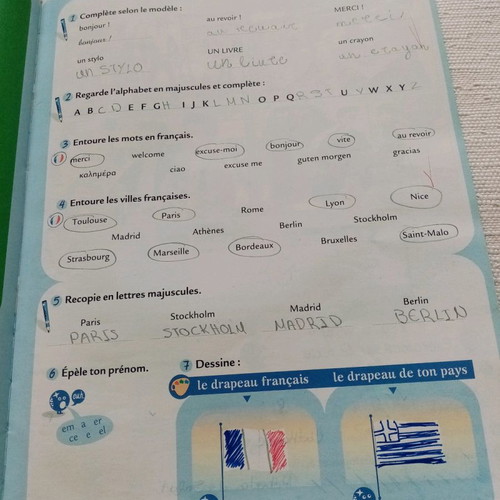 1 Complète selon le modèle :
bonjour ! au revoir ! MERCI !
bonjour ! au revoir merci
un stylo UN LIVRE un crayon
un STYLO un livre un crayon
2 Regarde l'alphabet en majuscules et complète :
A B C D E F G H I J K L M N O P Q R S T U V W X Y Z
3 Entoure les mots en français.
merci welcome excuse-moi bonjour vite au revoir
καλημέρα ciao excuse me guten morgen gracias
4 Entoure les villes françaises.
Toulouse Paris Rome Lyon Nice
Madrid Athènes Berlin Stockholm
Strasbourg Marseille Bordeaux Bruxelles Saint-Malo
5 Recopie en lettres majuscules.
Paris Stockholm Madrid Berlin
PARIS STOCKHOLM MADRID BERLIN
6 Épèle ton prénom. 7 Dessine :
le drapeau français le drapeau de ton pays
em a er
ce e el